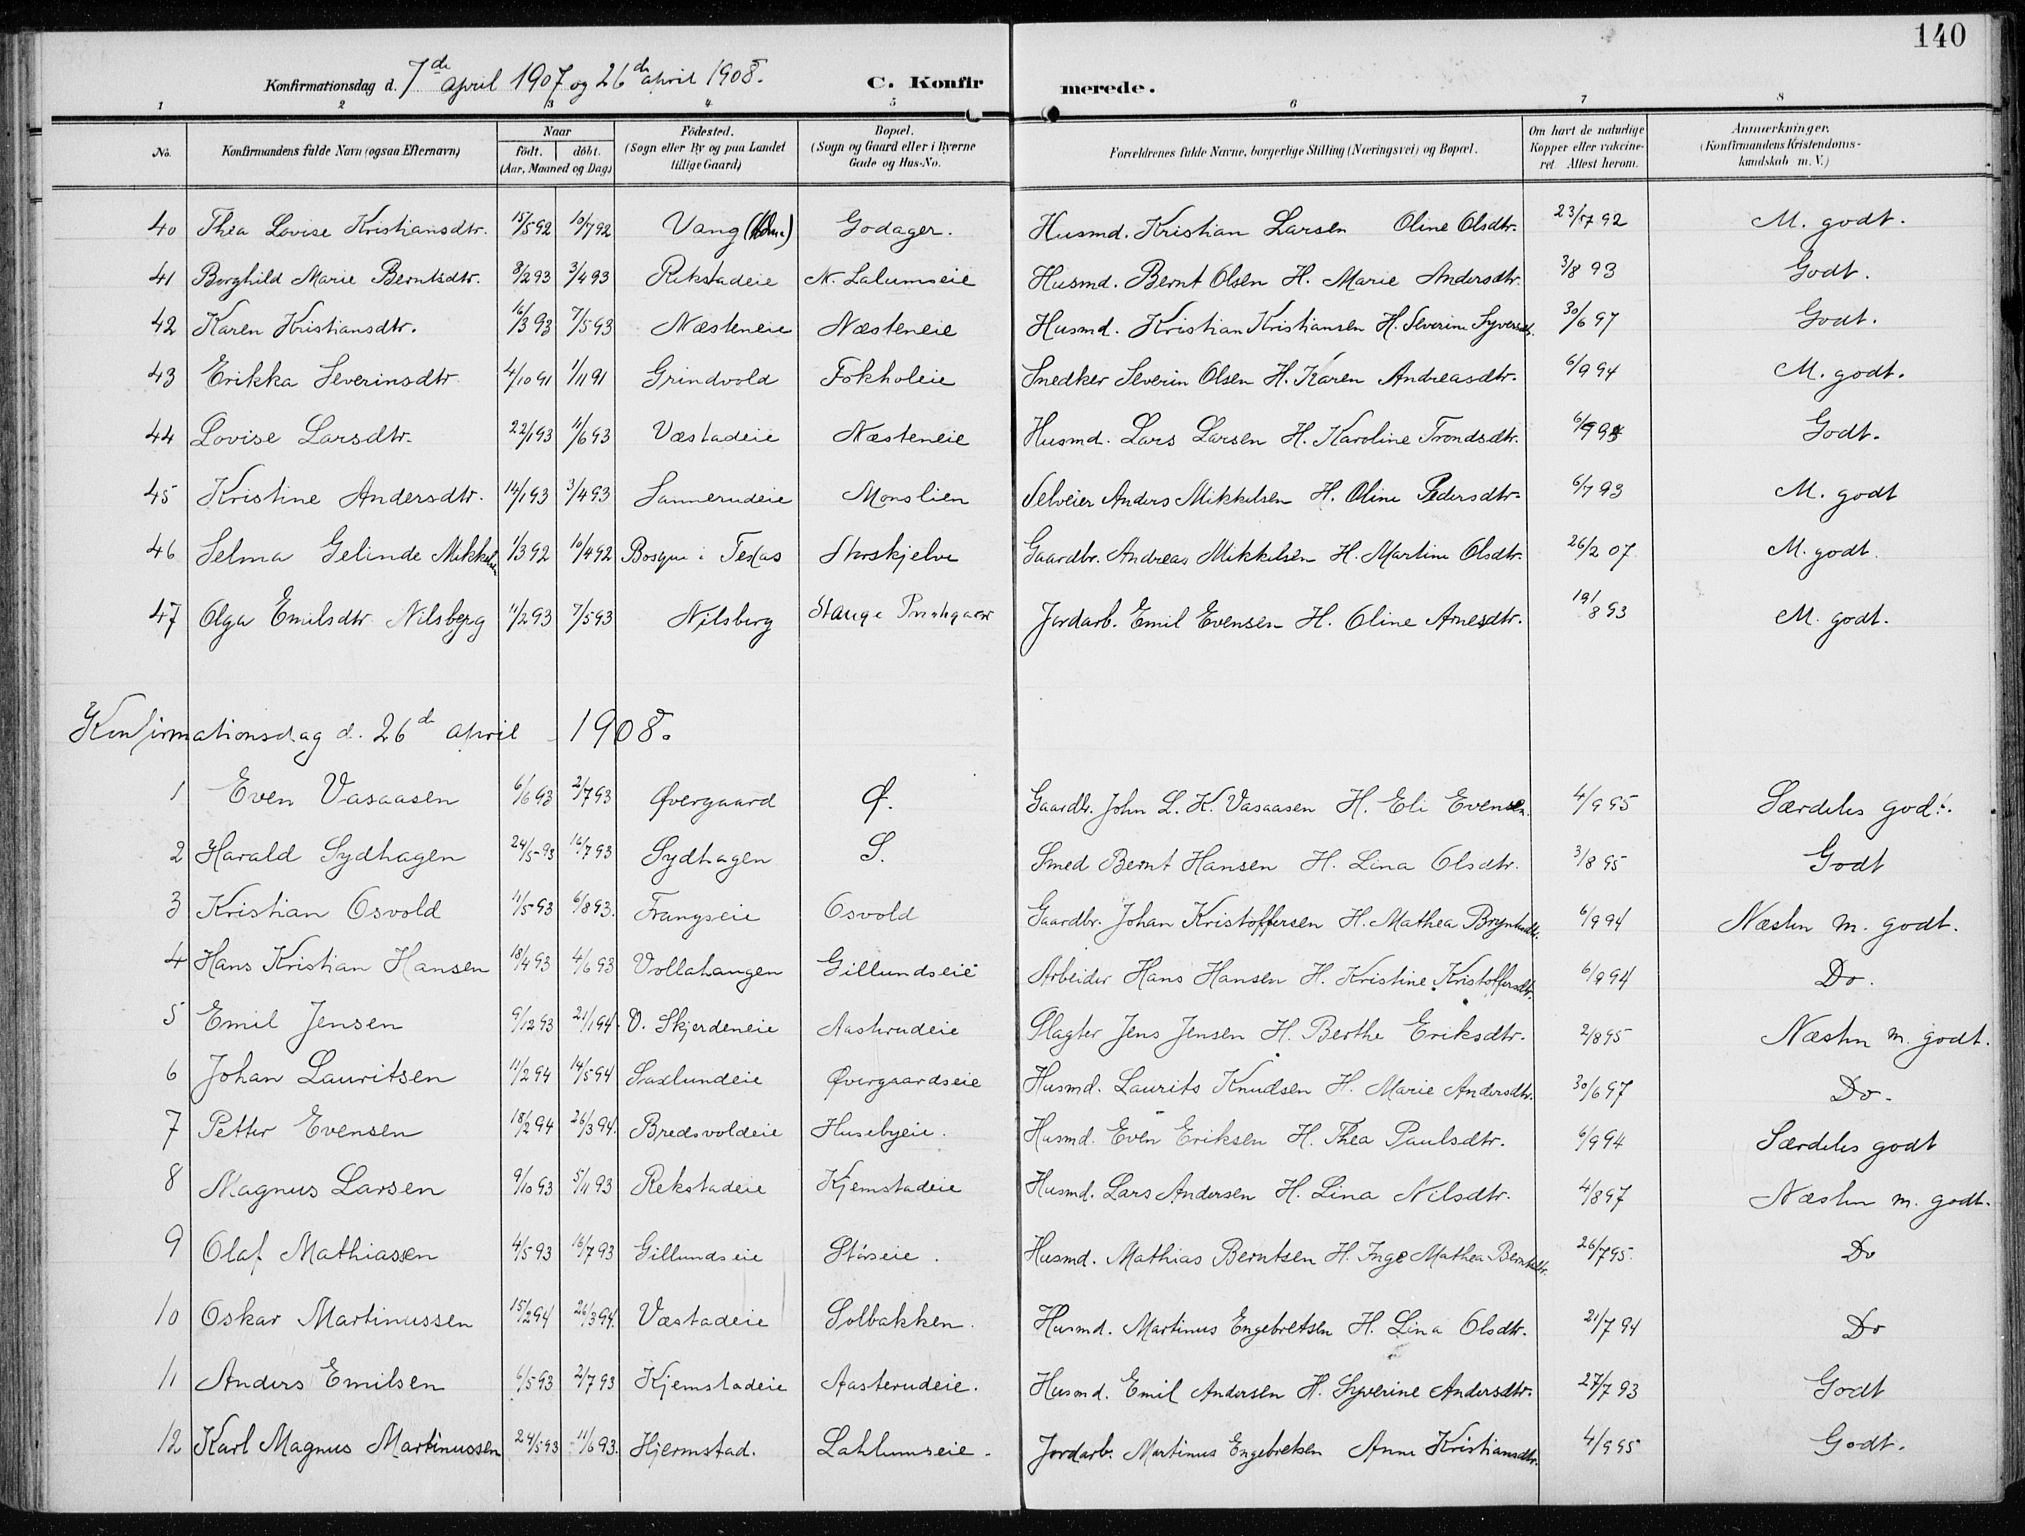 140
Konfirmationsdag d. 7de april 1907 og 26de april 1908. C. Konfirmerede.
1 2 3 4 5 6 7 8
No. Konfirmandens fulde Navn (ogsaa Efternavn) Naar födt. döbt. (Aar, Maaned og Dag) Födested. (Sogn eller By og paa Landet tillige Gaard) Bopæl. (Sogn og Gaard eller i Byerne Gade og Hus-No. Forældrenes fulde Navne, borgerlige Stilling (Næringsvei) og Bopæl. Om havt de naturlige Kopper eller vakcineret Attest herom. Anmærkninger. (Konfirmandens Kristendomskundskab m. V.)
40 Thea Lovise Kristiansdtr. 15/5 92 10/7 92 Vang Godager. Husmd. Kristian Larsen Oline Olsdtr. 23/7 92 M. godt.
41 Borghild Marie Berntsdtr. 8/2 93 3/4 93 Rekstadeie N. Lalumseie Husmd. Bernt Olsen H. Marie Andersdtr. 3/8 93 Godt.
42 Karen Kristiansdtr. 16/3 93 7/5 93 Næsteneie Næsteneie Husmd. Kristian Kristiansen H. Severine Syversdt. 30/6 97 Godt.
43 Erikka Severinsdtr. 4/10 91 1/11 91 Grindvold Fokholeie Snedker Severin Olsen H. Karen Andreasdtr. 6/9 94 M. godt.
44 Lovise Larsdtr. 22/1 93 11/6 93 Væstadeie Næsteneie Husmd. Lars Larsen H. Karoline Trondsdtr. Godt.
45 Kristine Andersdtr. 14/1 93 3/4 93 Sannerudeie Monslien Selveier Anders Mikkelsen H. Oline Pedersdtr. 6/7 93 M. godt
46 Selma Gelinde Mikkelsen 1/3 92 16/4 92 Bosque i Texas Storskjelve Gaardbr. Andreas Mikkelsen H. Martine Olsdtr. 26/2 07 M. godt.
47 Olga Emilsdtr Nilsberg 11/2 93 7/5 93 Nilsberg Stange Jordarb. Emil Evensen H. Oline Arnesdtr. 19/8 93 M. godt.
Konfirmationsdag d. 26de april 1908.
1 Even Vasaasen 6/6 93 2/7 93 Øvergaard Ø. Gaardbr. John L. K. Vasaasen H. Eli Evensen. 4/9 95 Særdeles godt.
2 Harald Sydhagen 24/5 93 16/7 93 Sydhagen S. Smed Bernt Hansen H. Lina Olsdtr. 3/8 95 Godt
3 Kristian Osvold 11/5 93 6/8 93. Frangseie Osvold Gaardbr. Johan Kristoffersen H. Mathea 6/9 94 Næsten m. godt.
4 Hans Kristian Hansen 18/4 93 4/6 93 Vollahaugen Gillundseie Arbeider Hans Hansen H. Kristine Kristoffersdtr. 6/9 94 Do.
5 Emil Jensen 9/12 93 21/1 94 V. Skjerdeneie Aasterudeie Slagter Jens Jensen H. Berthe Eriksdtr. 2/8 95 Næsten m. godt.
6 Johan Lauritsen 11/2 94 14/5 94 Saxlundeie Øvergaardseie Husmd. Laurits Knudsen H. Marie Andersdtr. 30/6 97 Do.
7 Petter Evensen 18/2 94 26/3 94. Bredsvoldeie Husebyeie. Husmd. Even Eriksen H. Thea Paulsdtr. 6/9 94 Særdeles godt
8 Magnus Larsen 9/10 93 5/11 93 Rekstadeie Kjemstadeie Husmd. Lars Andersen H. Lina Nilsdtr. 4/8 97 Næsten m. godt.
9 Olaf Mathiassen 4/5 93 16/7 93 Gillundseie Stöseie. Husmd. Mathias Berntsen H. Inge Mathea Berntsdtr. 26/7 95. Do
10 Oskar Martinussen 15/2 94 26/3 94. Væstadeie Solbakken. Husmd. Martinus Engebretsen H. Lina Olsdtr. 21/7 94 Do
11 Anders Emilsen 6/5 93 2/7 93 Kjemstadeie Aasterudeie. Husmd. Emil Andersen H. Syverine Andersdtr. 27/7 93 Godt
12 Karl Magnus Martinussen 24/5 93 11/6 93. Hjermstad. Lahlumseie. Jordarb. Martinus Engebretsen Anne Kristiansdtr. 4/9 95 Godt.